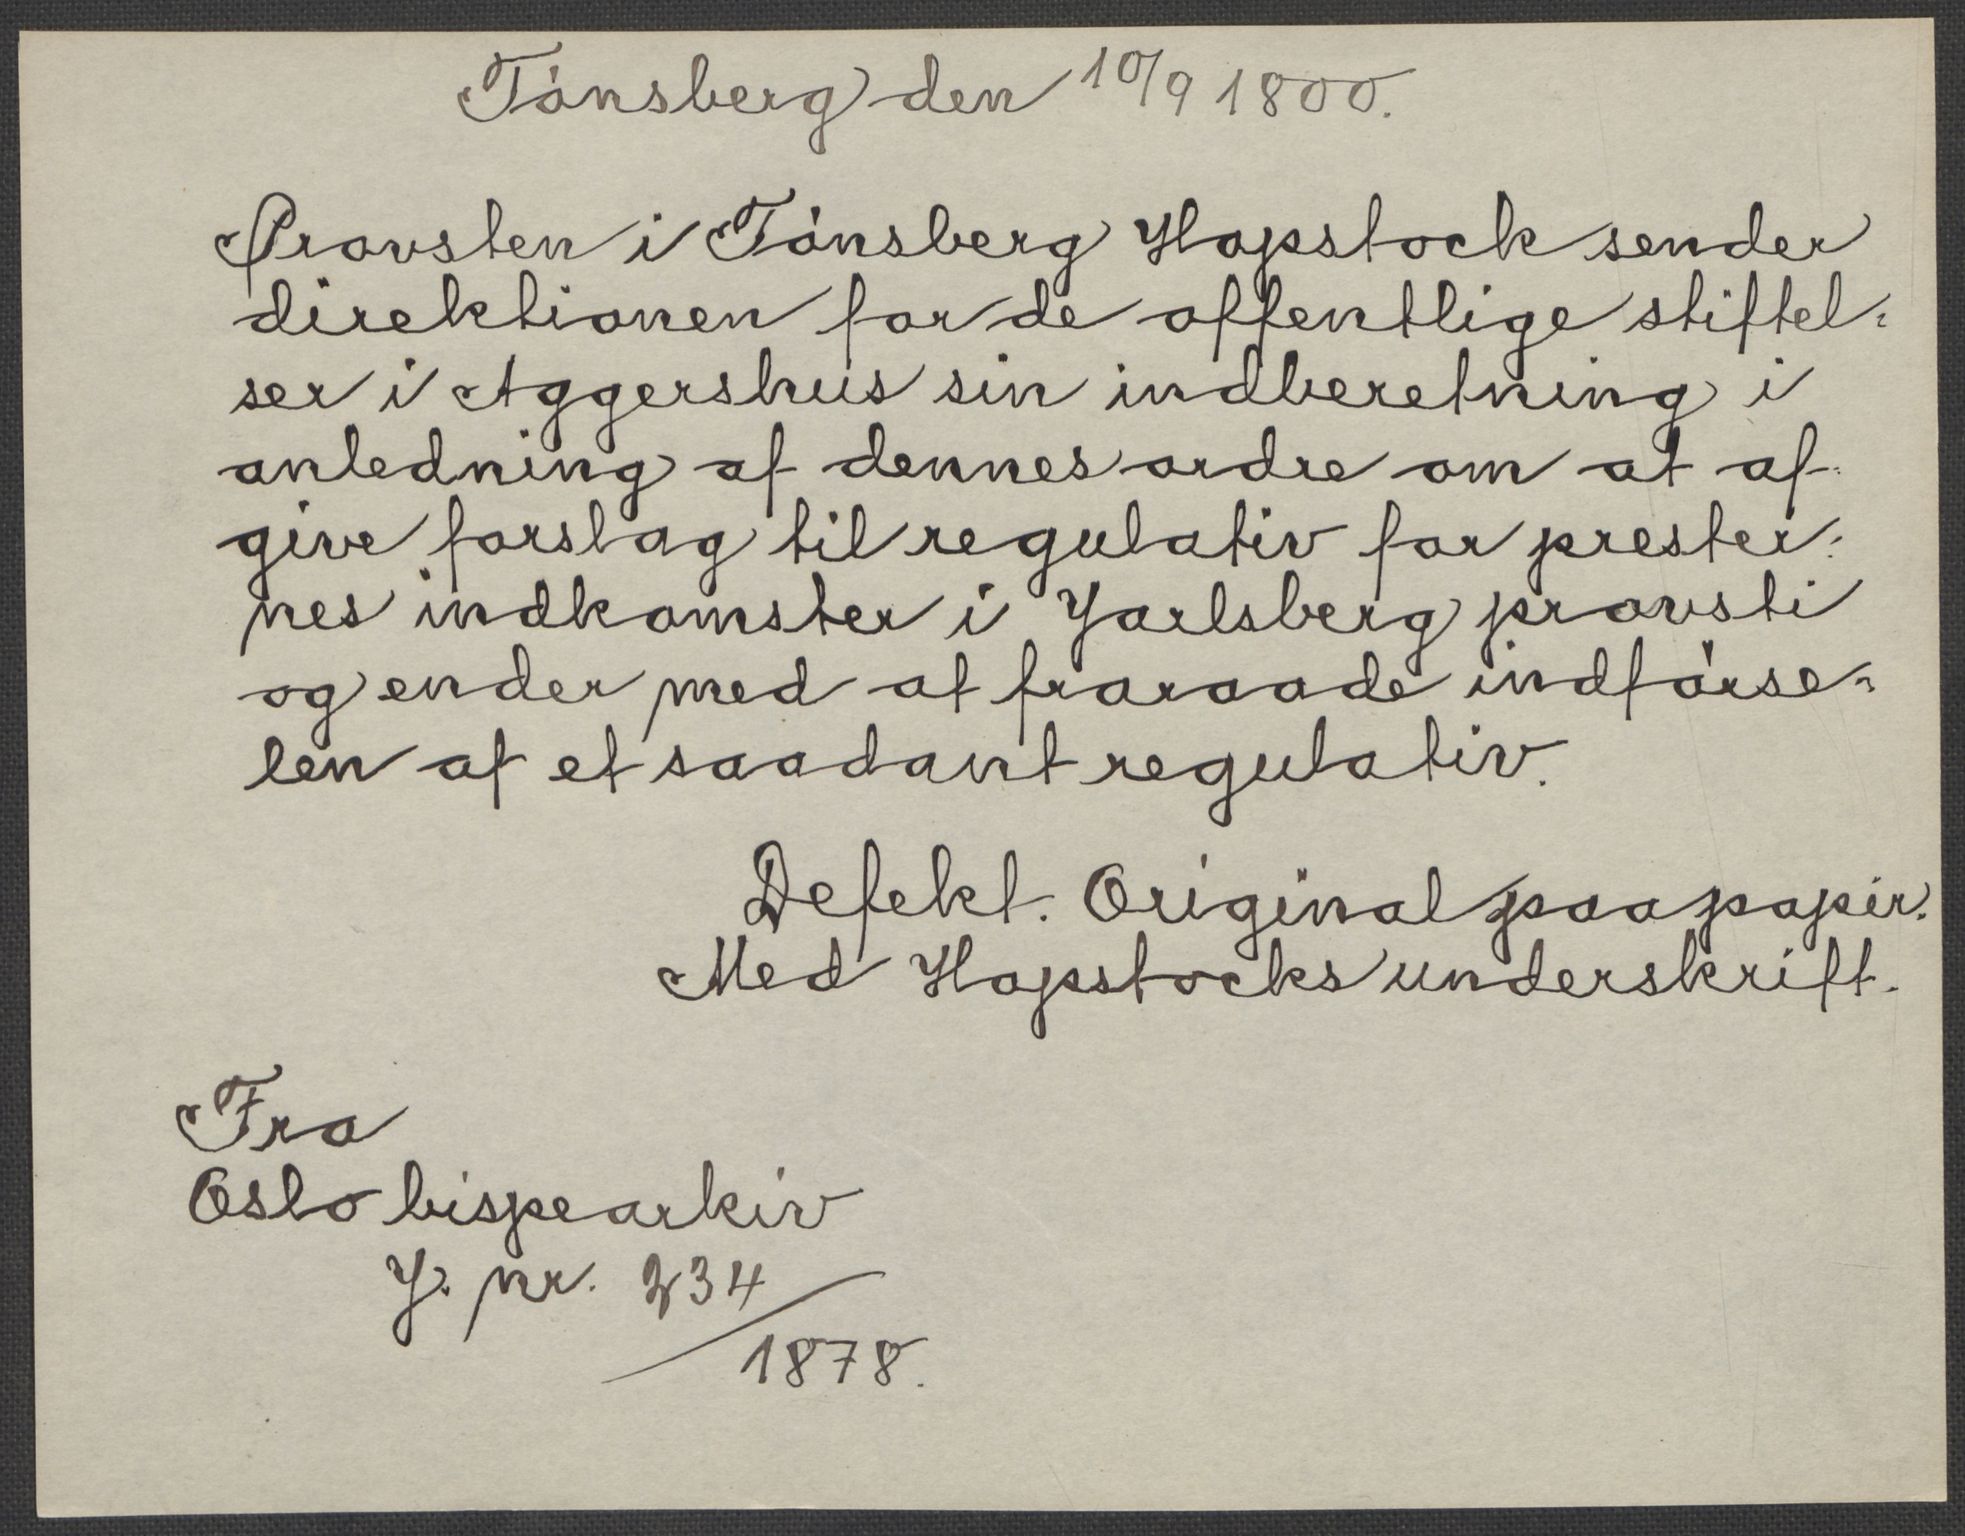 Tónsberg den 10/9 1800.
Provsten i Tónsberg Hopstock sender
direktionen for de offentlige stiftel-
ser i Aggershus sin indberetning i
anledning af dennes ordre om at af-
give forslag til regulativ for prester-
nes indkomster i Jarlsberg provsti
og ender med at fraraade indfórse-
len af et saadant regulativ.
Defekt. Original paa papir.
Med Hopstocks underskrift.
Fra
Oslo bispearkiv
J. nr. 234/
1878.